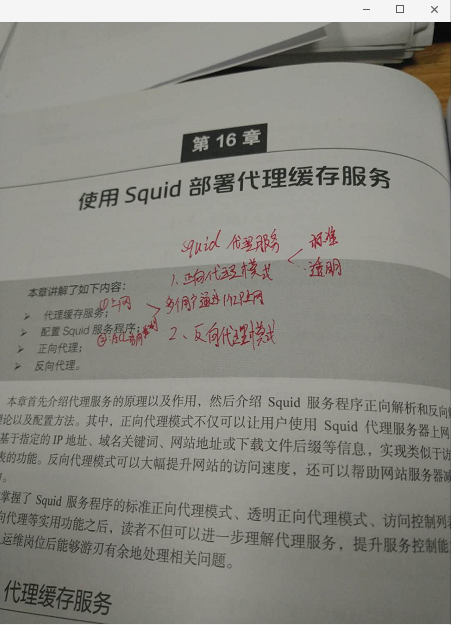 第 16 章
使用 Squid 部署代理缓存服务
squid 代理服务
标准
1、正向代理模式
透明
本章讲解了如下内容：
上网
代理缓存服务；
多个用户通过1个IP上网
配置 Squid 服务程序；
② ACL
2、反向代理模式
正向代理；
反向代理。
本章首先介绍代理服务的原理以及作用，然后介绍 Squid 服务程序正向解析和反向
论以及配置方法。其中，正向代理模式不仅可以让用户使用 Squid 代理服务器上网
基于指定的 IP 地址、域名关键词、网站地址或下载文件后缀等信息，实现类似于访
表的功能。反向代理模式可以大幅提升网站的访问速度，还可以帮助网站服务器减
掌握了 Squid 服务程序的标准正向代理模式、透明正向代理模式、访问控制列
向代理等实用功能之后，读者不但可以进一步理解代理服务，提升服务控制能
运维岗位后能够游刃有余地处理相关问题。
代理缓存服务